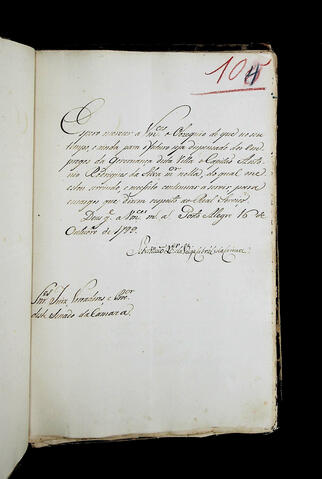 104
Espero merecer a Vm.ces o Obsequio de que no seu
tempo, e ainda para o futuro seja dispensado dos Em-
pregos da Governança desta Villa o Capitão Anto-
nio Rodrigues da Silva m.or nella, do qual me
estou servindo, e necessito continuar a servir para
encargos que dizem respeito ao Real Serviço.
Deus g.e a Vm.ces m. a. Porto Alegre 16 de
Outubr.o de 1798.
Sebastião X.er da Veiga Cabral da Camara
Snr.es Juiz, Vereadores, e
do Senado da Camara